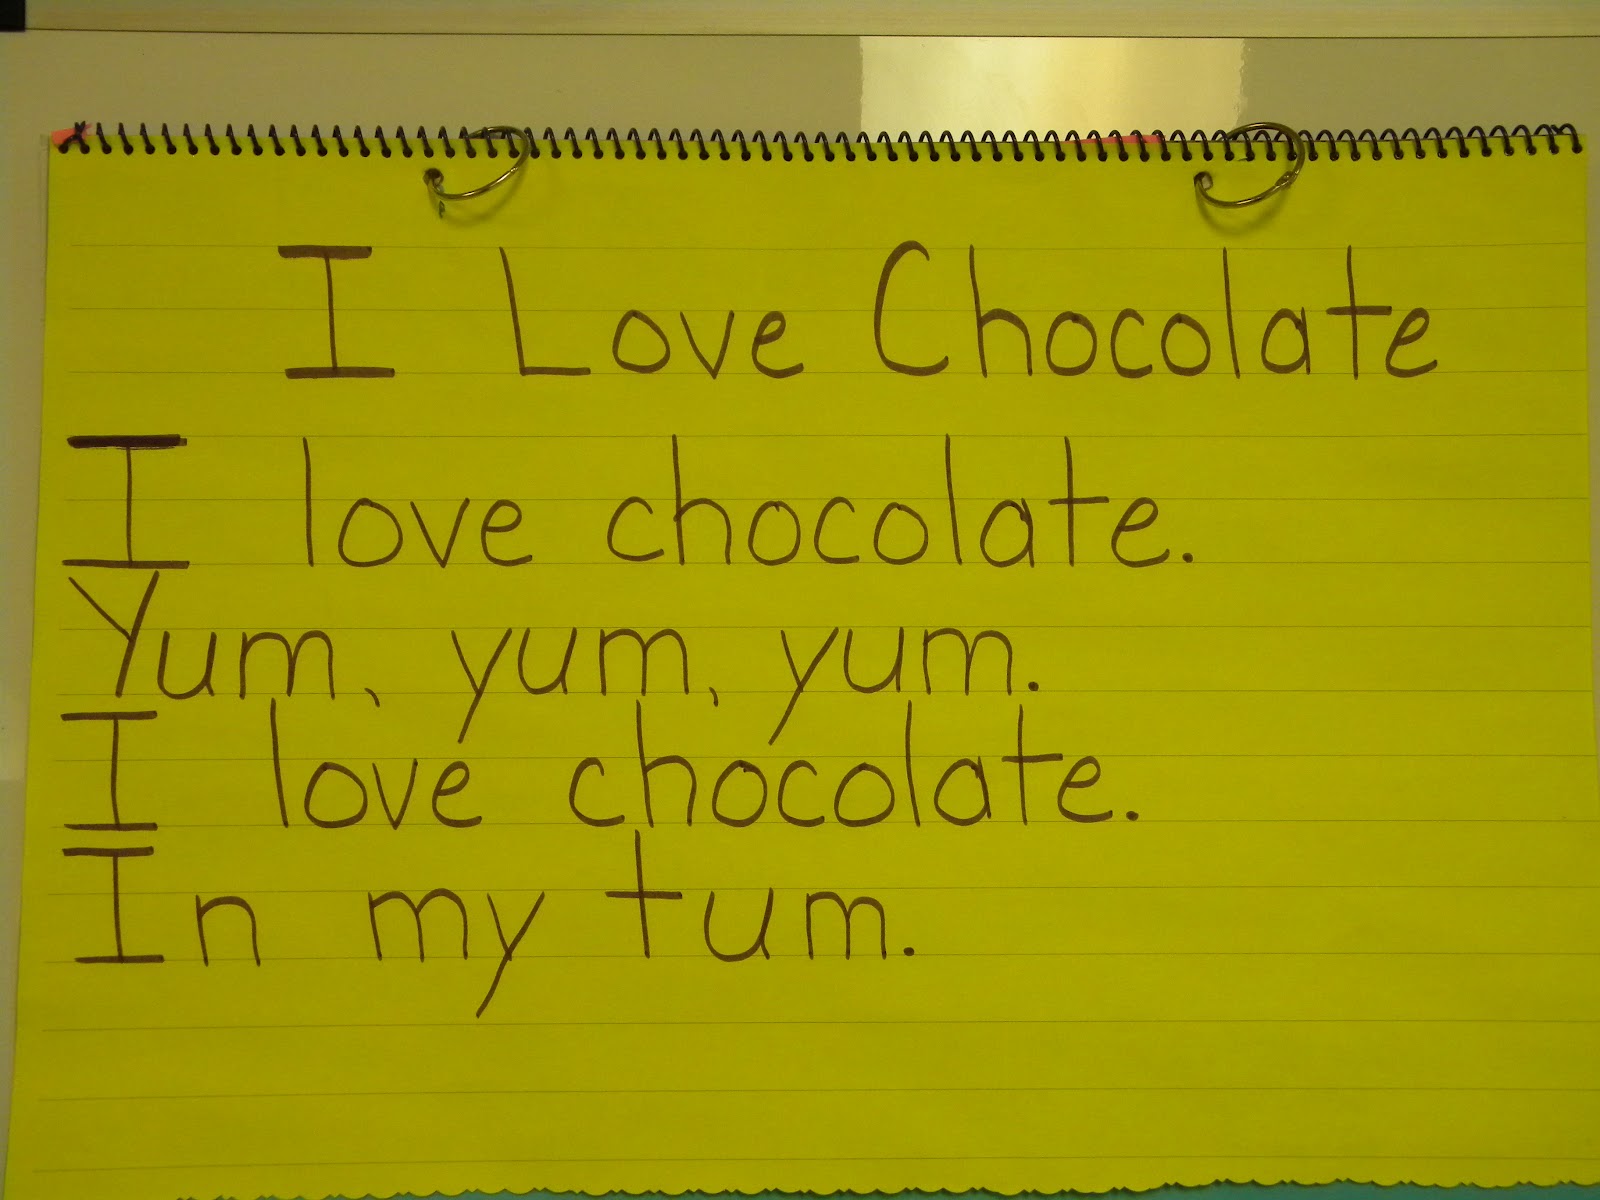 I Love Chocolate
I love chocolate.
Yum, yum, yum.
I love chocolate.
In my tum.